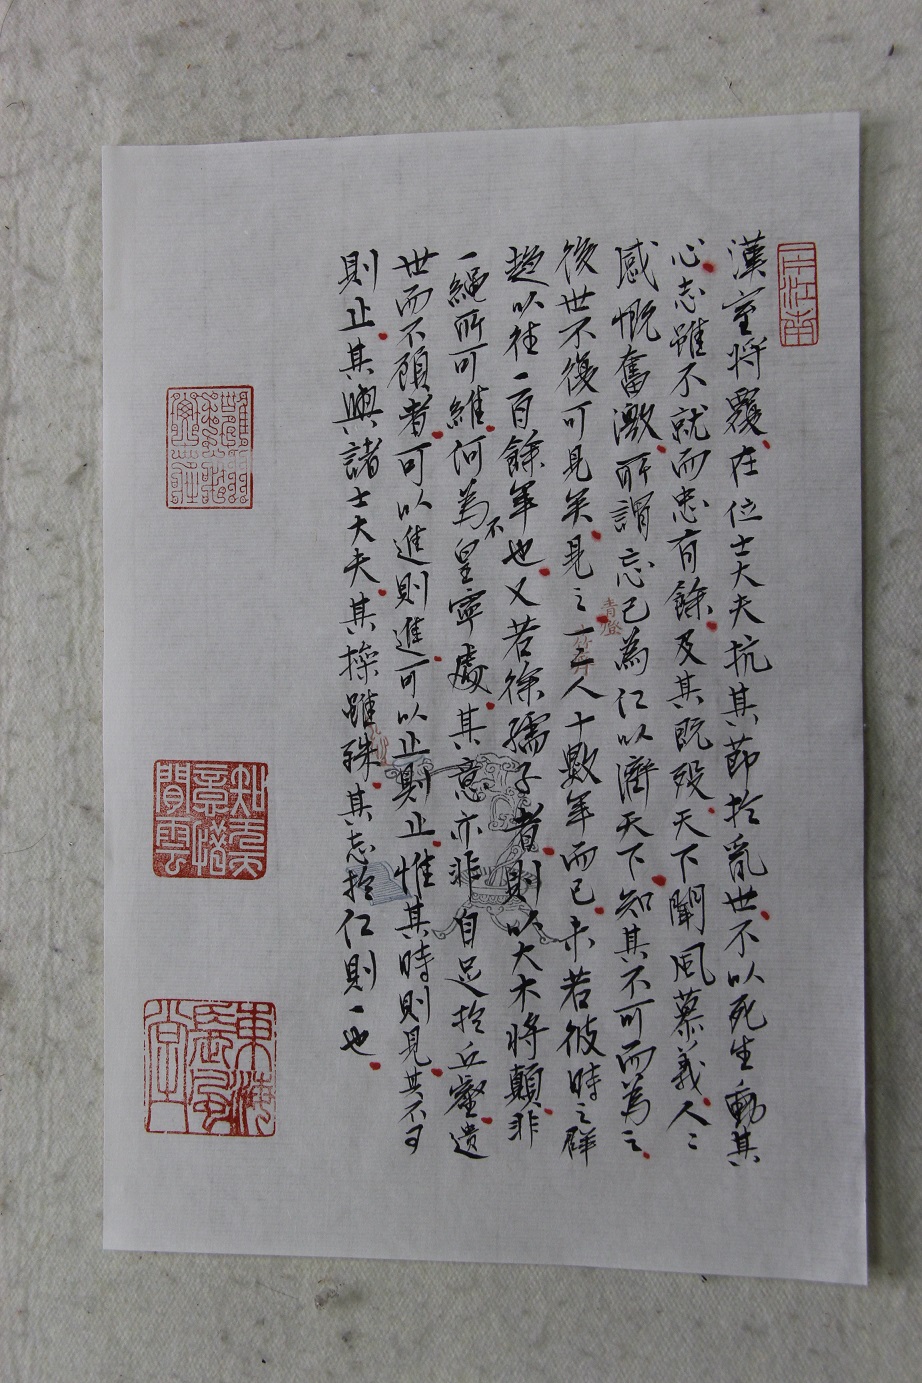 漢室將覆在位士大夫抗其節於亂世不以死生動其
心志雖不就而忠有餘及其既歿天下聞風慕義人〻
感慨奮激所謂忘己為仁以濟天下知其不可而為之
後世不復可見矣見之一二人十數年而已未若彼時之群
趨以往一百餘年也又若徐孺子者則以大木將顛非
一繩所可維何為不皇寧處其意亦非自足於丘壑遺
世而不顧者可以進則進可以止則止惟其時則見其不可
則止其與諸士大夫其操雖殊其志於仁則一也
青燈